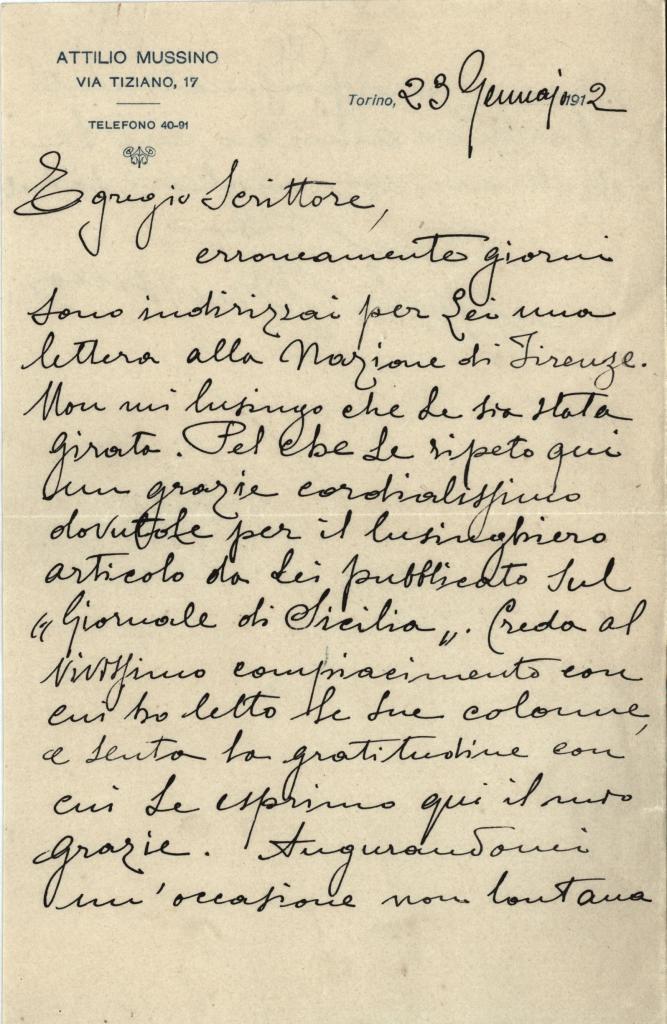 ATTILIO MUSSINO
VIA TIZIANO, 17
TELEFONO 40-91
Torino, 23 Gennajo 1912
Egregio Scrittore,
erroneamente giorni
sono indirizzai per Lei una
lettera alla Nazione di Firenze.
Non mi lusingo che Le sia stata
girata. Pel che Le ripeto qui
un grazie cordialissimo
dovutole per il lusinghiero
articolo da Lei pubblicato sul
"Giornale di Sicilia". Creda al
vivissimo compiacimento con
cui ho letto le sue colonne,
e senta la gratitudine con
cui Le esprimo qui il mio
grazie. Augurandomi
un'occasione non lontana